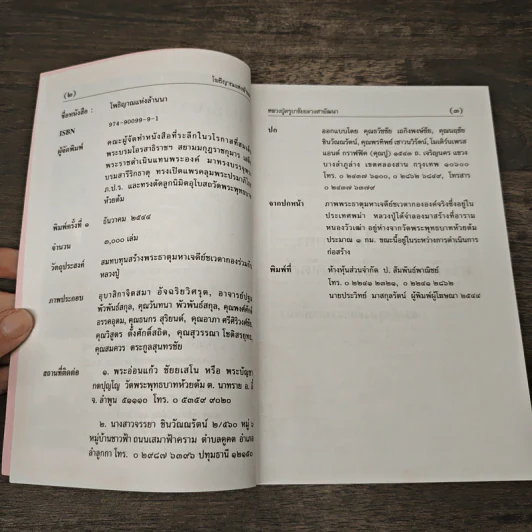 (๒)
ชื่อหนังสือ : โพธิญาณแห่งล้านนา
ISBN 974-90099-9-1
ผู้จัดพิมพ์ คณะผู้จัดทำหนังสือที่ระลึกในวโรกาสที่สมเด็จ
พระบรมโอรสาธิราชฯ สยามมกุฎราชกุมาร เสด็จ
พระราชดำเนินแทนพระองค์ มาทรงบรรจุพระ
บรมสารีริกธาตุ ทรงเปิดแพรคลุมพระปรมาภิไธย
ภ.ป.ร. และทรงตัดลูกนิมิตอุโบสถวัดพระพุทธบาท
ห้วยต้ม
พิมพ์ครั้งที่ ๑ ธันวาคม ๒๕๔๔
จำนวน ๓,๐๐๐ เล่ม
วัตถุประสงค์ สมทบทุนสร้างพระธาตุมหาเจดีย์ชเวดากองร่วมกับ
หลวงปู่
ภาพประกอบ อุบาสิกาจิตสมา อัจฉริยวิศรุต, อาจารย์ปฐม
พัวพันธ์สกุล, คุณวันทนา พัวพันธ์สกุล, คุณพงศ์ศักดิ์
อรรคอุดม, คุณธนกร สุริยนต์, คุณอาภา ศรีศิริวงศ์ชัย,
คุณวิสูตร ตั้งศักดิ์สถิต, คุณสุวรรณา โชติสรยุทธ,
คุณสมควร ตระกูลสุนทรชัย
สถานที่ติดต่อ ๑. พระอ่อนแก้ว ชัยยเสโน หรือ พระบัญชา
กตปุญโญ วัดพระพุทธบาทห้วยต้ม ต. นาทราย อ. ลี้
จ. ลำพูน ๕๑๑๑๐ โทร. ๐ ๕๓๕๙ ๙๐๒๐
๒. นางสาวจรรยา ชินวัณณรัตน์ ๒/๕๖๐ หมู่ ๖
หมู่บ้านชาวฟ้า ถนนเสมาฟ้าคราม ตำบลคูคต อำเภอ
ลำลูกกา โทร. ๐ ๒๙๘๗ ๖๓๙๖ ปทุมธานี ๑๒๑๓๐
หลวงปู่ครูบาชัยยะวงศาพัฒนา (๓)
ปก ออกแบบโดย คุณธวัชชัย เอกิจพงษ์ชัย, คุณนฤชัย
ชินวัณณรัตน์, คุณพรทิพย์ เชาวนวิรัตน์, โมเดิร์นเพรส
แอนด์ กราฟฟิค (คุณปู) ๑๕๔๑ ถ. เจริญนคร แขวง
บางลำภูล่าง เขตคลองสาน กรุงเทพ ๑๐๖๐๐
โทร. ๐ ๒๔๓๗ ๖๑๐๐, ๐ ๒๘๖๒ ๒๘๔๙, โทรสาร
๐ ๒๔๓๗ ๖๓๗๙
จากปกหน้า ภาพพระธาตุมหาเจดีย์ชเวดากององค์จริงซึ่งอยู่ใน
ประเทศพม่า หลวงปู่ได้จำลองมาสร้างที่อาราม
หนองวัวเฒ่า อยู่ห่างจากวัดพระพุทธบาทห้วยต้ม
ประมาณ ๑ กม. ขณะนี้อยู่ในระหว่างการดำเนินการ
ก่อสร้าง
พิมพ์ที่ ห้างหุ้นส่วนจำกัด ป. สัมพันธ์พาณิชย์
โทร. ๐ ๒๒๔๑ ๒๓๒๑, ๐ ๒๒๔๑ ๒๘๖๒
นายประวิทย์ มาสกุลรัตน์ ผู้พิมพ์ผู้โฆษณา ๒๕๔๔